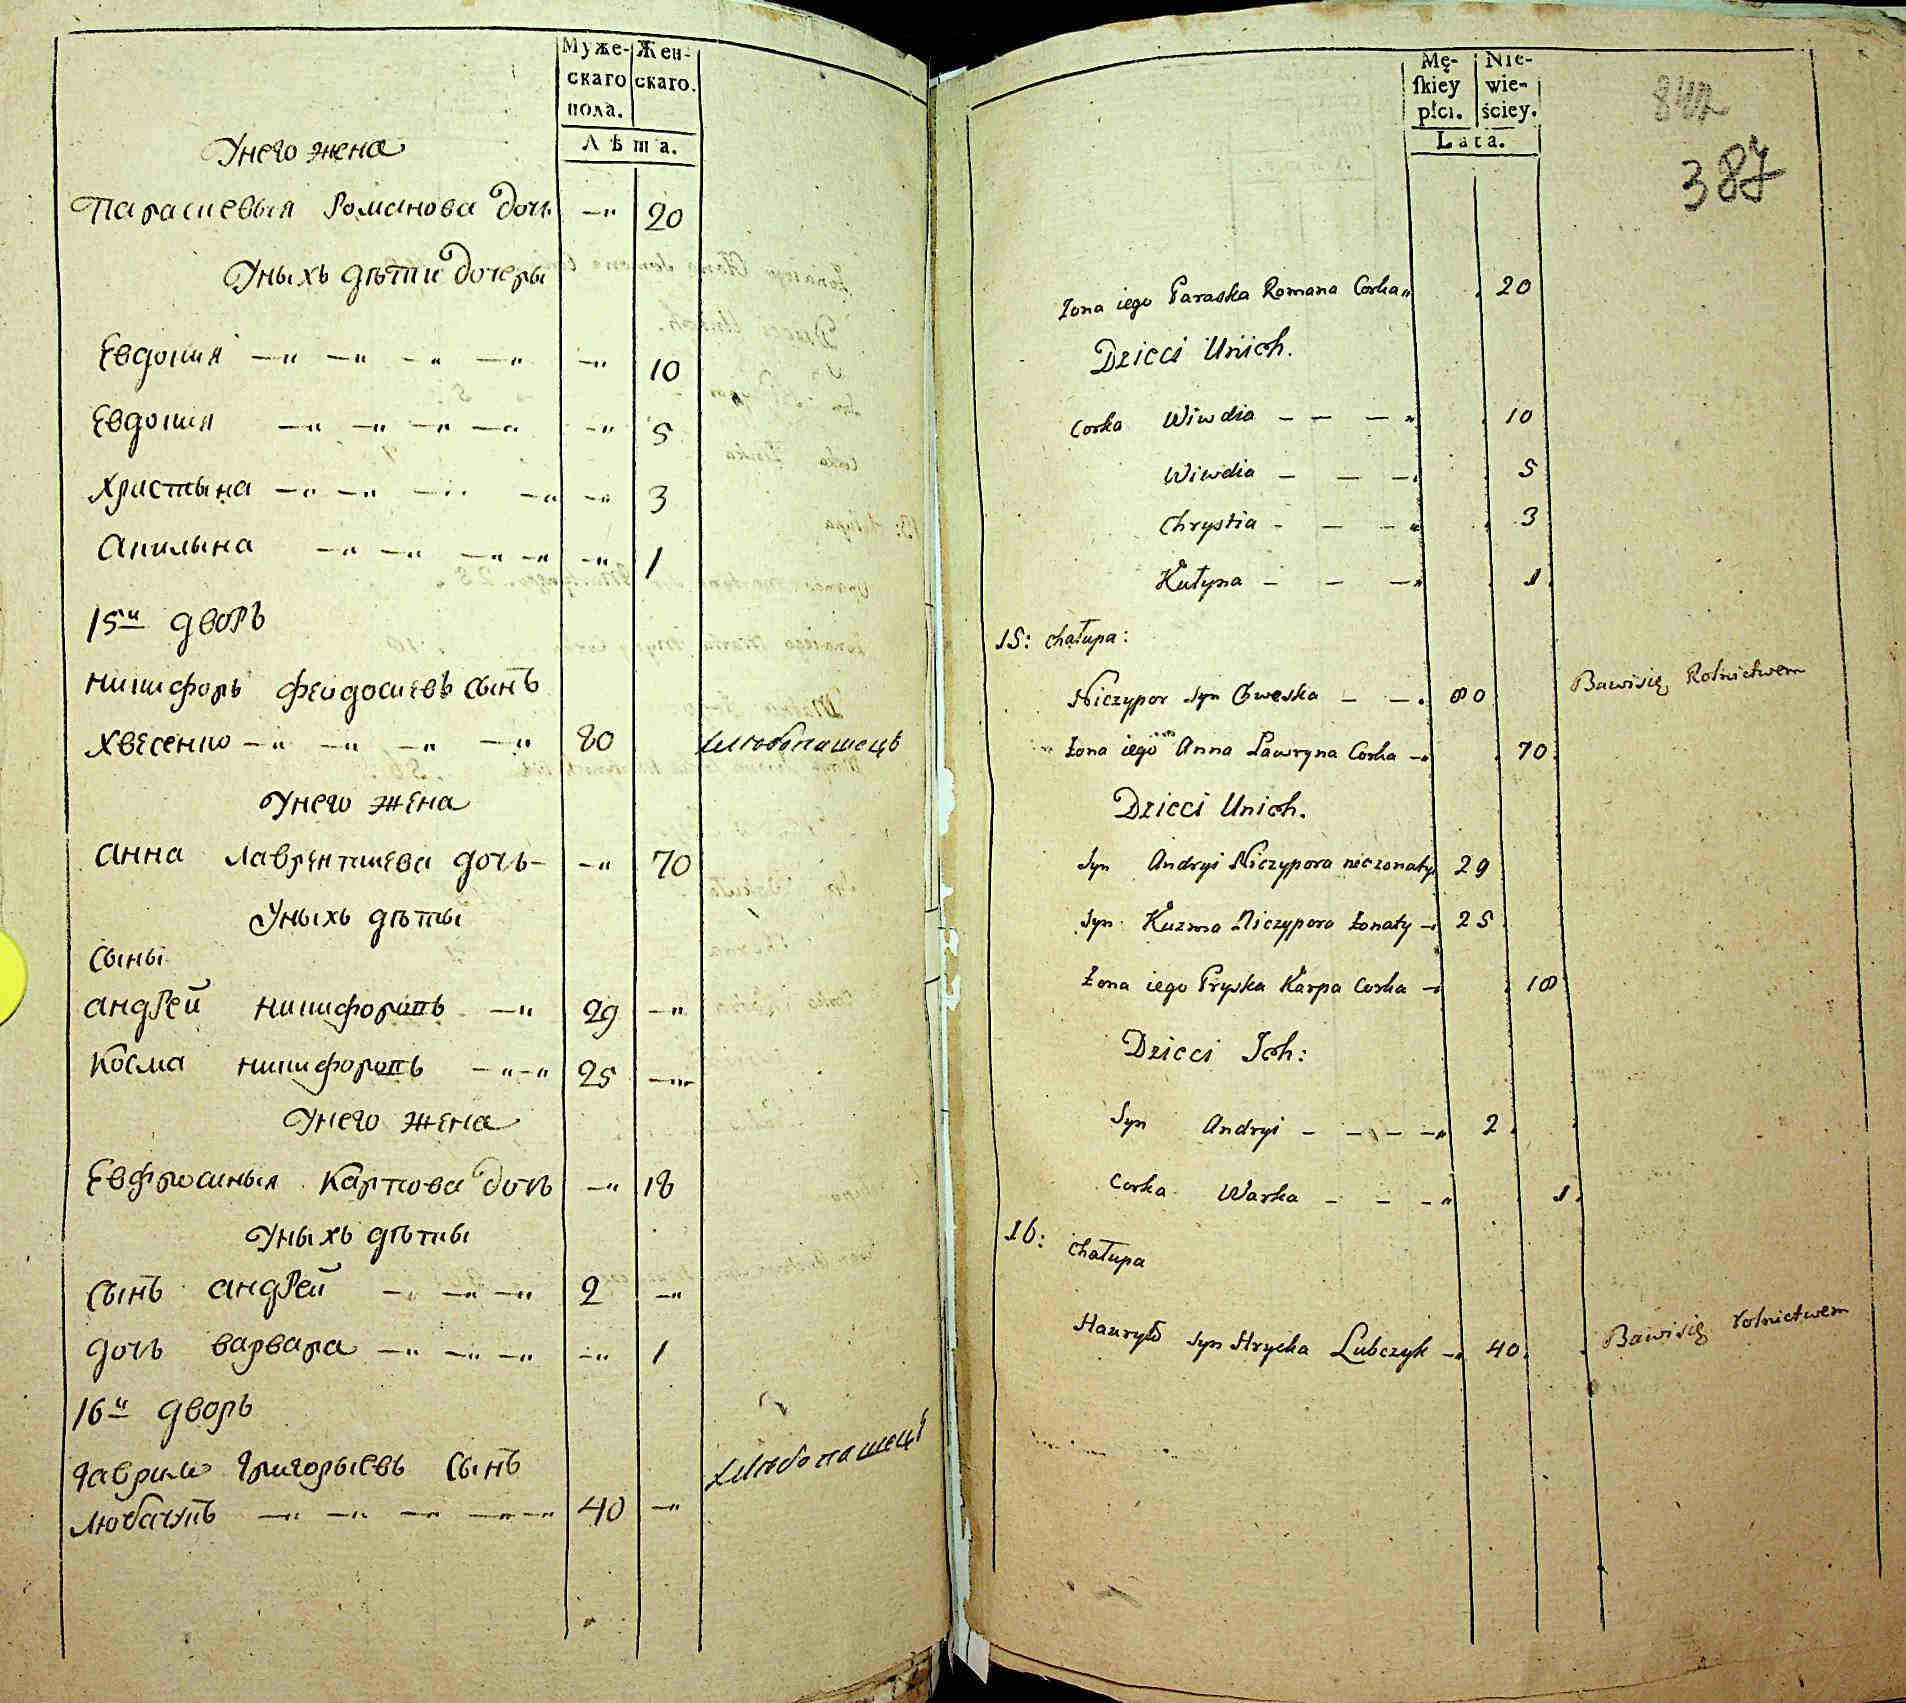 Муже-
скаго
пола.
Жен-
скаго.
Лѣта.
Унего жена
Параскевыя Романова дочь — 20
Уныхъ дѣти дочеры
Евдокия — — — — — 10
Евдокия — — — — — 5
Христына — — — — — 3
Акилына — — — — — 1
15й дворъ
Никифоръ Феодосиевъ сынъ
Хвесенко — — — — 80 хлѣбопашецъ
Унего жена
Анна Лаврентиева дочь — — 70
Уныхъ дѣты
Сыны
Андрей Никифоровъ — 29 —
Косма Никифоровъ — — 25 —
Унего жена
Евфросинья Карпова дочь — 18
Уныхъ дѣты
Сынъ Андрей — — — 2 —
дочь Варвара — — — — 1
16й дворъ
Гаврило Григорыевъ Сынъ хлѣбопашецъ
Любачукъ — — — — — 40 —
Mę-
skiey
płci.
Nie-
wie-
ściey.
Lata.
387
Żona iego Paraska Romana Corka 20
Dzieci Unich.
Corka Wiwdia — — — 10
Wiwdia — — — 5
Chrystia — — — 3
Kułyna — — — 1
15: chałupa:
Niczypor Syn Chweska — — 80 Bawisię Rolnictwem
Żona iego Anna Ławryna Corka — 70
Dzieci Unich.
Syn Andryi Niczypora nieżonaty 29
Syn Kuzma Niczypora Żonaty — 25
Żona iego Pryska Karpa Corka — 18
Dzieci Ich:
Syn Andryi — — — — 2
Corka Warka — — — 1
16: chałupa
Hauryło Syn Hrycka Lubczyk — 40 Bawisię rolnictwem